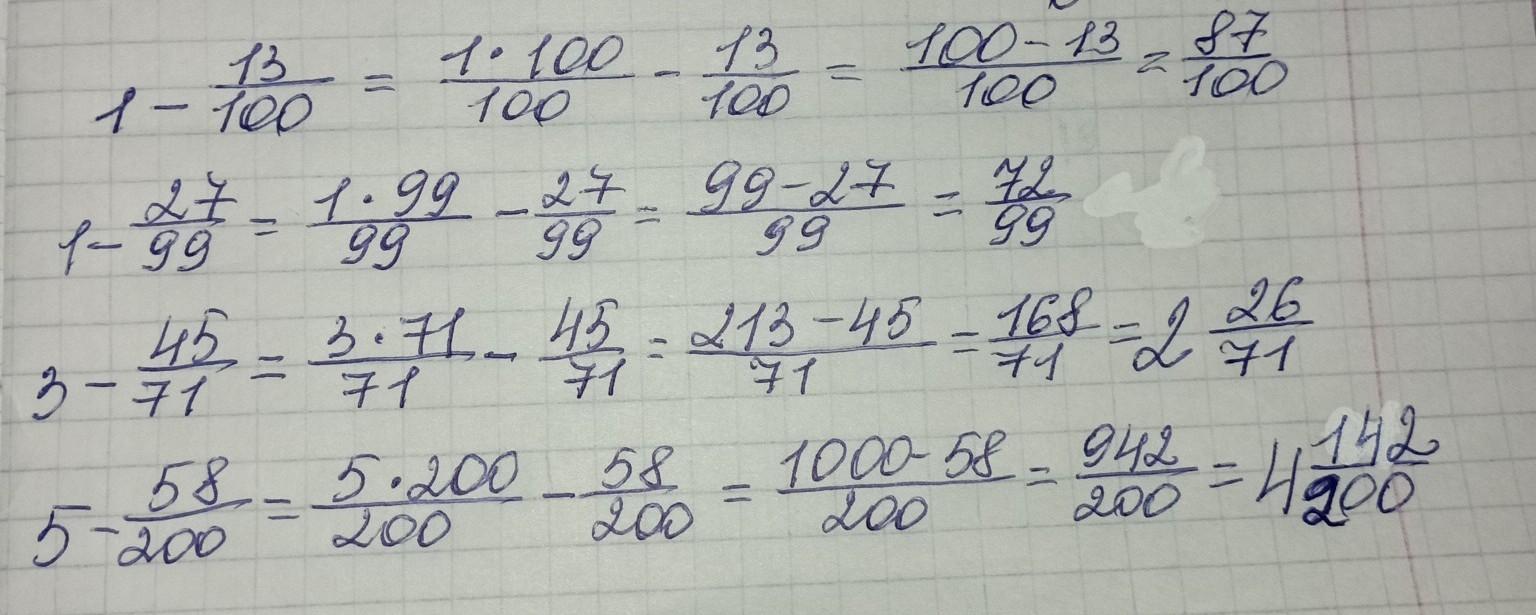 1 - 13/100 = 1·100/100 - 13/100 = 100-13/100 = 87/100
1 - 27/99 = 1·99/99 - 27/99 = 99-27/99 = 72/99
3 - 45/71 = 3·71/71 - 45/71 = 213-45/71 = 168/71 = 2 26/71
5 - 58/200 = 5·200/200 - 58/200 = 1000-58/200 = 942/200 = 4 142/200